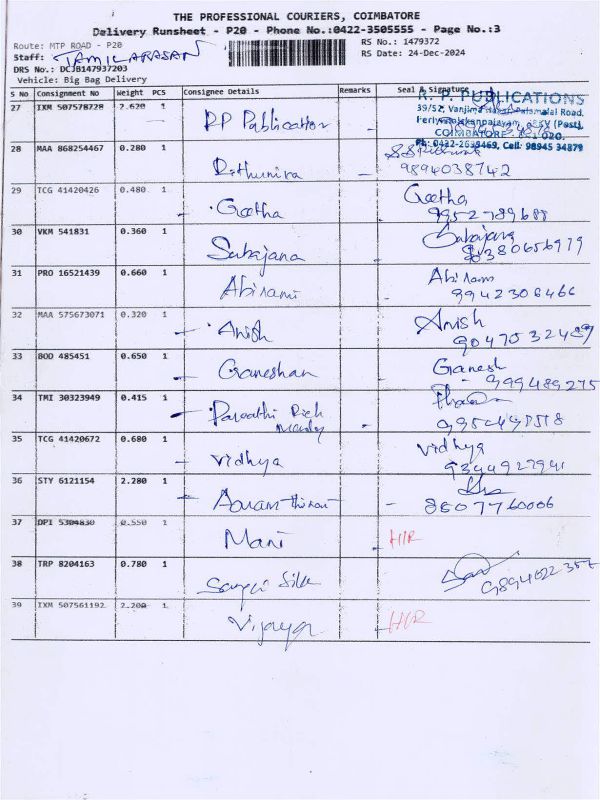 THE PROFESSIONAL COURIERS, COIMBATORE
Delivery Runsheet - P20 - Phone No.:0422-3505555 - Page No.:3
Route: MTP ROAD - P20 RS No.: 1479372
Staff: TAMILARASAN RS Date: 24-Dec-2024
DRS No.: DCJB147937203
Vehicle: Big Bag Delivery
S No Consignment No Weight PCS Consignee Details Remarks Seal & Signature
R. P. PUBLICATIONS
39/52, Vanjima Nagar, Palamalai Road,
COIMBATORE - 641 020.
Ph: 0422-2639469, Cell: 98945 34879
27 IXM 507578728 2.620 1 RP Publication
28 MAA 868254467 0.280 1 Rithunira 9894038742
29 TCG 41420426 0.480 1 Geetha Geetha
9952789688
30 VKM 541831 0.360 1 Sabajana Sabajana
31 PRO 16521439 0.660 1 Abirami Abirami
9942306466
32 MAA 575673071 0.320 1 Anish Anish
9047532489
33 BOD 485451 0.650 1 Ganeshan Ganesh
999489275
34 TMI 30323949 0.415 1
35 TCG 41420672 0.680 1 Vidhya Vidhya
9344927941
36 STY 6121154 2.280 1 8607760006
37 DPI 5304830 0.550 1 Mani H/R
38 TRP 8204163 0.780 1 9894022357
39 IXM 507561192 2.200 1 Vijaya H/R